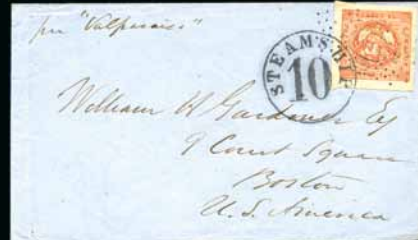 per "Valparaiso"
STEAM·SHIP
10
William H Gardiner Esq
9 Court Square
Boston
U. S. America